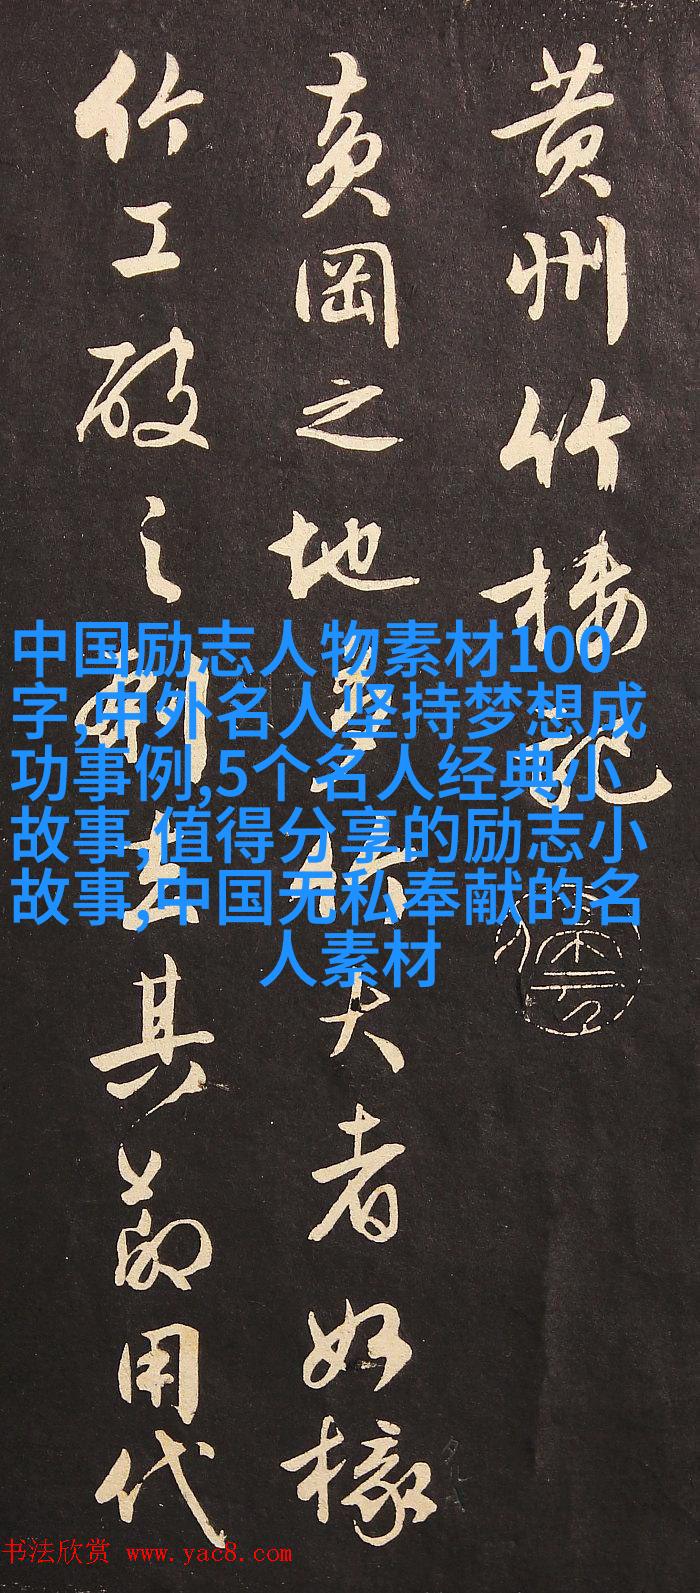 黄州竹楼記
黄岡之地多竹大者如椽
竹工破之刳去其節用代
中国励志人物素材100
字,中外名人坚持梦想成
功事例,5个名人经典小
故事,值得分享的励志小
故事,中国无私奉献的名
人素材
书法欣赏 www.yac8.com